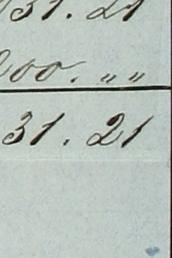 31.21
00. „ „
31.21